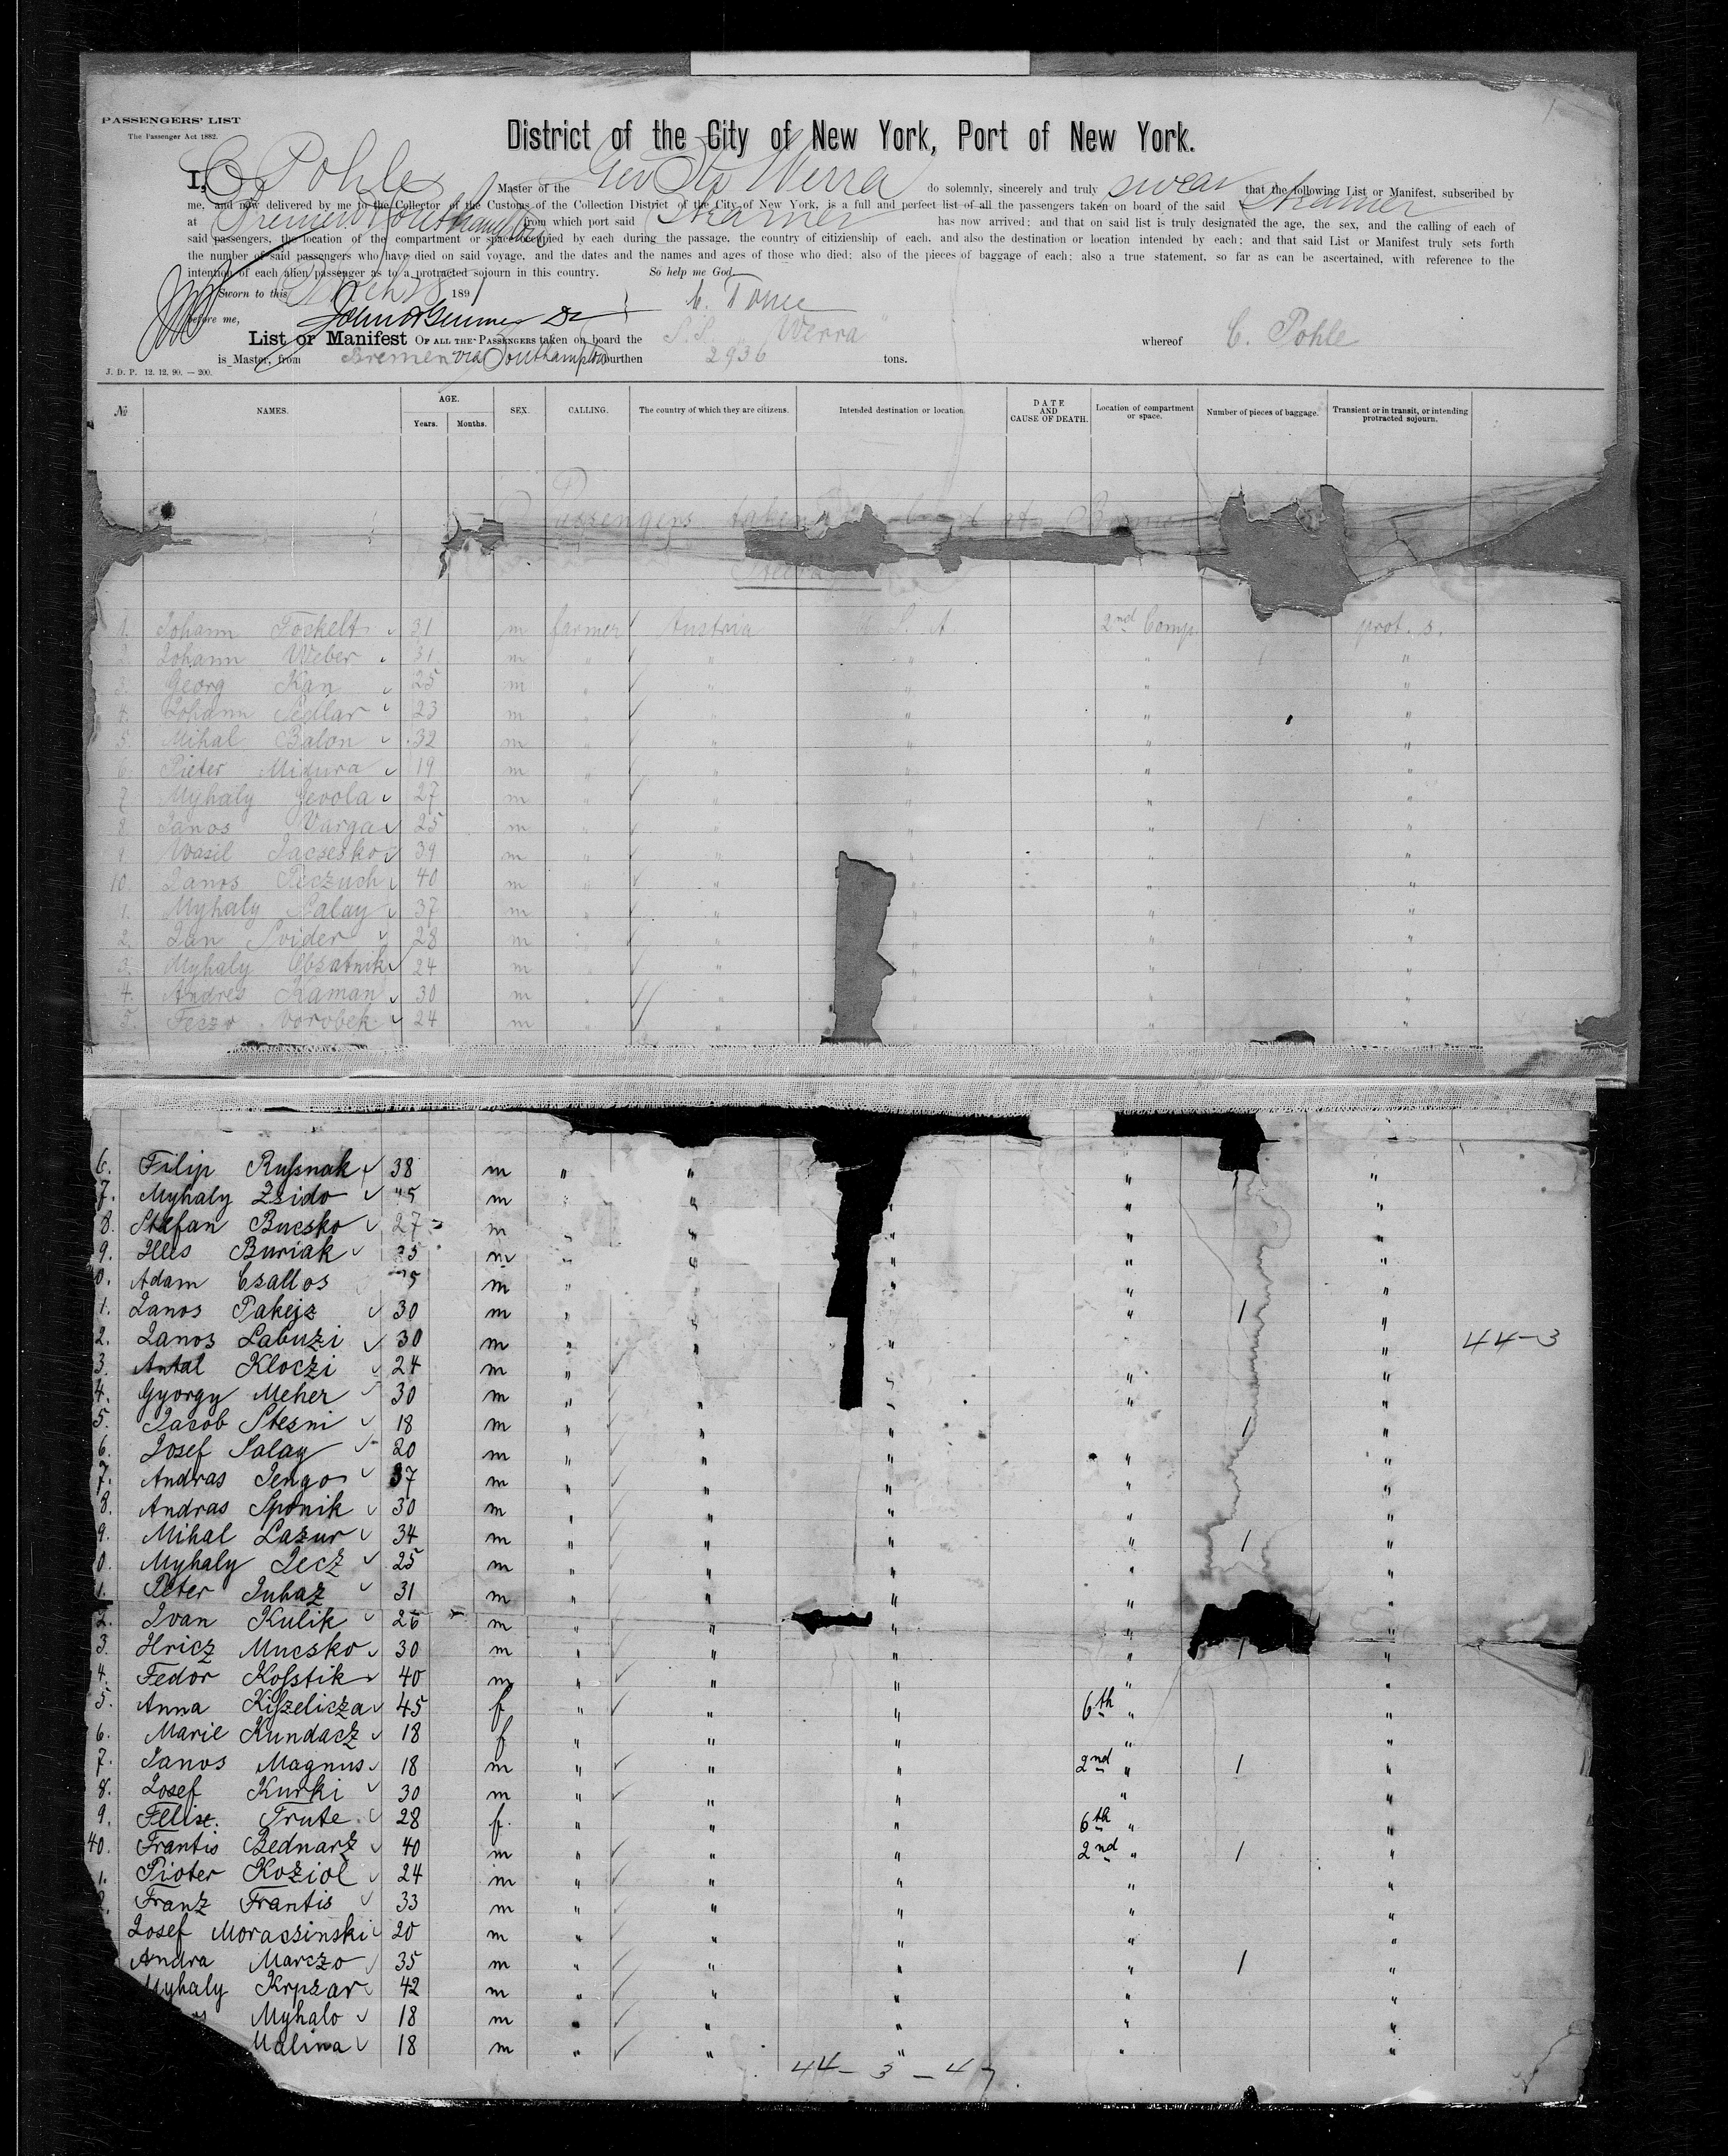 PASSENGERS' LIST
The Passenger Act 1882.
District of the City of New York, Port of New York.
I, C Pohle Master of the Ger Str Werra do solemnly, sincerely and truly swear that the following List or Manifest, subscribed by
me, and now delivered by me to the Collector of the Customs of the Collection District of the City of New York, is a full and perfect list of all the passengers taken on board of the said Steamer
at Bremen & Southampton from which port said Steamer has now arrived; and that on said list is truly designated the age, the sex, and the calling of each of
said passengers, the location of the compartment or space occupied by each during the passage, the country of citizienship of each, and also the destination or location intended by each; and that said List or Manifest truly sets forth
the number of said passengers who have died on said voyage, and the dates and the names and ages of those who died; also of the pieces of baggage of each; also a true statement, so far as can be ascertained, with reference to the
intention of each alien passenger as to a protracted sojourn in this country. So help me God
Sworn to this March 28 1891
before me,
List or Manifest OF ALL THE PASSENGERS taken on board the S.S. Werra whereof C. Pohle
is Master, from Bremen via Southampton burthen 2936 tons.
J. D. P. 12. 12. 90. — 200.
№ NAMES. AGE. Years. Months. SEX. CALLING. The country of which they are citizens. Intended destination or location. DATE AND CAUSE OF DEATH. Location of compartment or space. Number of pieces of baggage. Transient or in transit, or intending protracted sojourn.
Passengers taken on board at Bremen
1. Johann Fockelt 31 m farmer Austria U. S. A 2nd Comp. prot. s.
2. Johann Weber 31 m " " " " 1 "
3. Georg Kan 25 m " " " " "
4. Johann Sedlar 23 m " " " " 1 "
5. Mihal Balon 32 m " " " " "
6. Pieter Midura 19 m " " " " "
7. Myhaly Jevola 27 m " " " " "
8. Janos Varga 25 m " " " " 1 "
9. Wasil Jacsesko 39 m " " " " "
10. Janos Peczuch 40 m " " " " "
1. Myhaly Salay 37 m " " " " "
2. Jan Svider 28 m " " " " "
3. Myhaly Obsatnik 24 m " " " " "
4. Andres Kaman 30 m " " " " "
5. Feszo Vorobek 24 m " " " " "
6. Filip Rußnak 38 m " " " 1 "
7. Myhaly Zsido m " " " " "
8. Stefan Bucsko 27 m " " " " "
9. Illes Buriak 35 m " " " " "
0. Adam Csallos m " " " " "
1. Janos Pakejz 30 m " " " 1 "
2. Janos Labuzi 30 m " " " " " 44-3
3. Antal Kloczi 24 m " " " "
4. Gyorgy Meher 30 m " " " " "
5. Jacob Stesni 18 m " " " 1 "
6. Josef Salay 20 m " " " " "
7. Andras Jengo 37 m " " " " "
8. Andras Sponik 30 m " " " " "
9. Mihal Lazur 34 m " " " " 1 "
0. Myhaly Jecz 25 m " " " " "
1. Peter Juhaz 31 m " " " " "
2. Ivan Kulik 26 m " " " " "
3. Hricz Mucsko 30 m " " " " 1 "
4. Fedor Koßtik 40 m " " " " "
5. Anna Kißzelicza 45 f " " " 6th " "
6. Marie Kundacz 18 f " " " " "
7. Janos Magnus 18 m " " " 2nd " 1 "
8. Josef Kurki 30 m " " " " "
9. Felise. Trute 28 f. " " " 6th " "
40. Frantis Bednarz 40 m " " " 2nd " 1 "
1. Pioter Koziol 24 m " " " " "
2. Franz Frantis 33 m " " " " "
Josef Moraczinski 20 m " " " " "
Andra Marczo 35 m " " " " 1 "
Myhaly Krpzar 42 m " " " " "
Myhalo 18 m " " " " "
Malina 18 m " " " " "
44 - 3 - 47